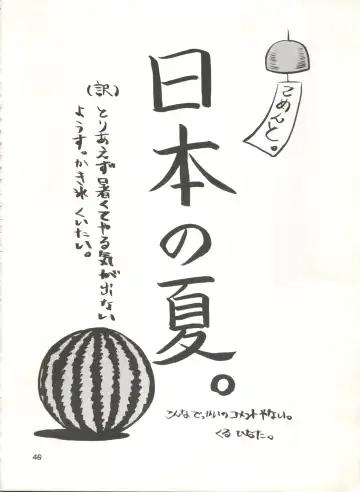 こめんと。
日本の夏。
(訳)
とりあえず暑くてやる気が出ない
ようす。かき氷くいたい。
こんなでっかいのコメントやない。
くるひなた。
46